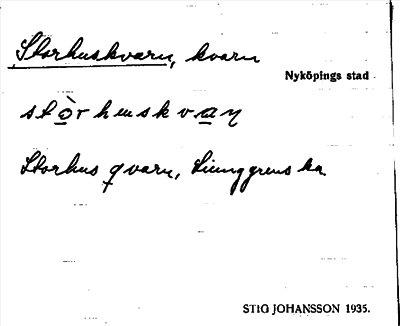 Storhuskvarn, kvarn
Nyköpings stad
stòrhuskvaɳ
Storhus qvarn, Liunggrenska
STIG JOHANSSON 1935.